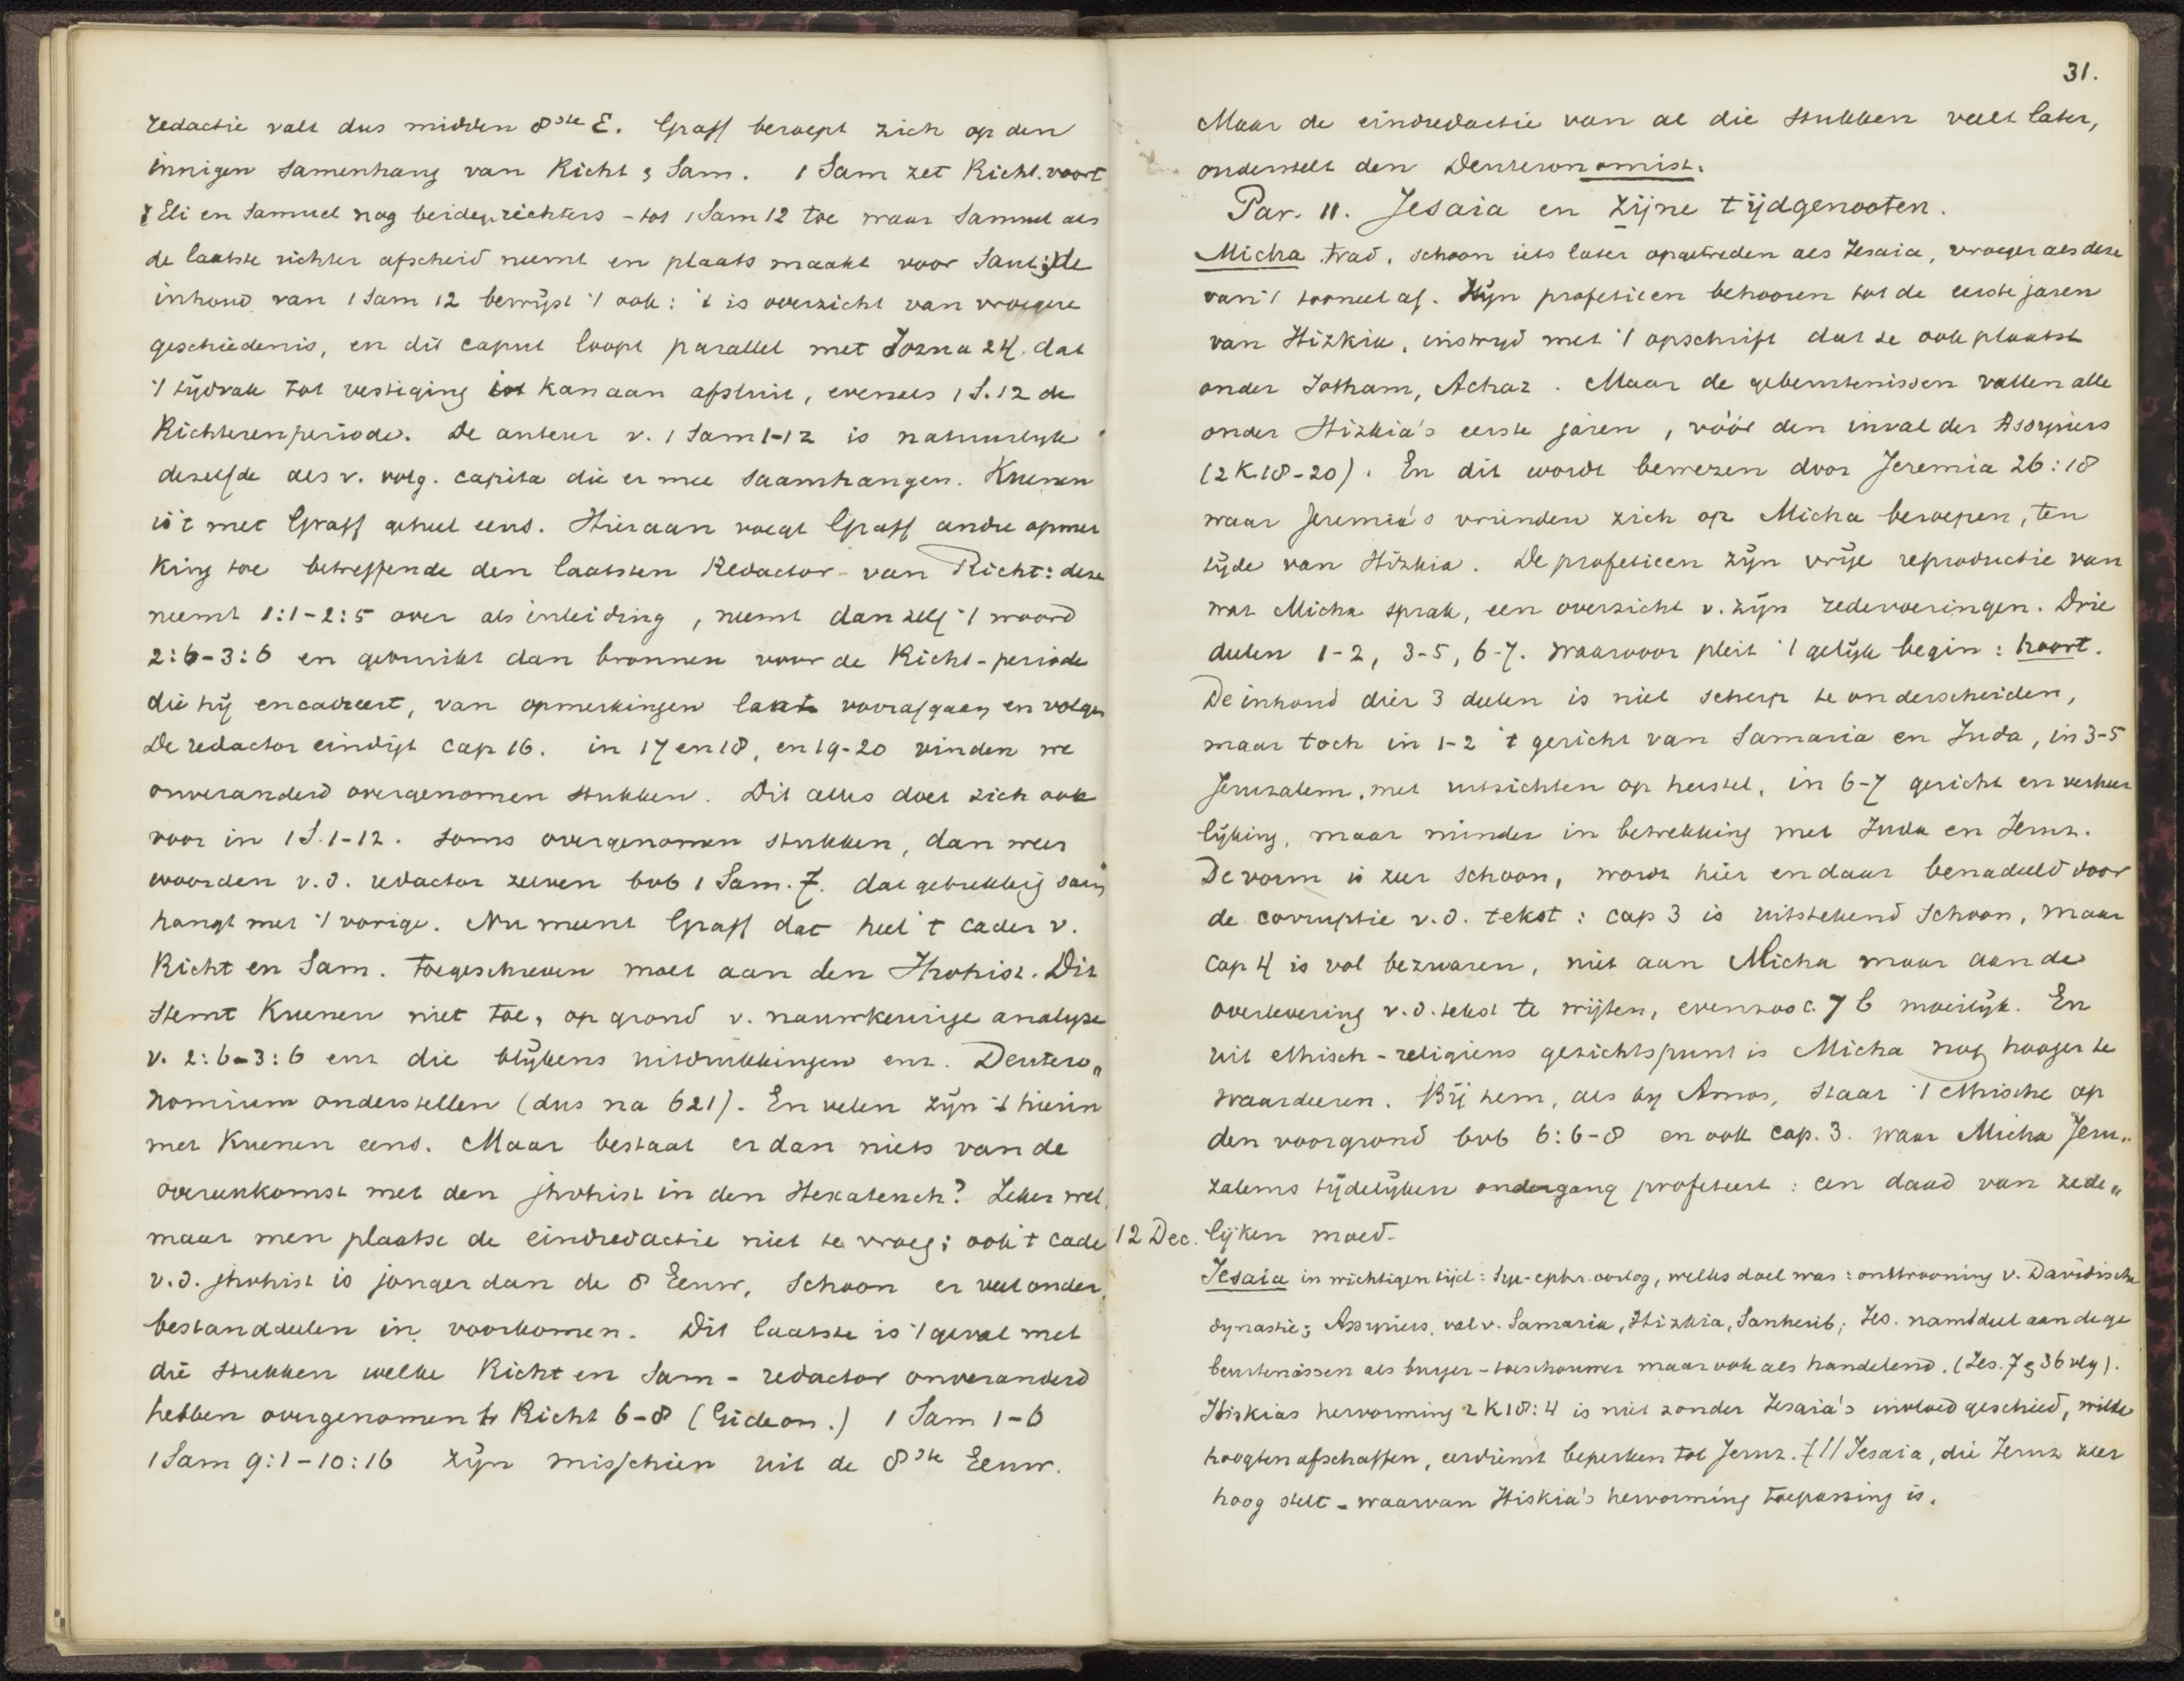 redactie valt dus midden 8ste E. Graff beroept zich op den
innigen samenhang van Richt & Sam. 1 Sam zet Richt. voort
Eli en Samuel nog beiden richters - tot 1 Sam 12 toe waar Samuel als
de laatste richter afscheid neemt en plaats maakt voor Saul; de
inhoud van 1 Sam 12 bewijst 't ook: 't is overzicht van vroegere
geschiedenis, en dit caput loopt parallel met Jozua 24. dat
't tijdvak tot vestiging in Kanaan afsluit, evenals 1 S. 12 de
Richterenperiode. De auteur v. 1 Sam 1-12 is natuurlijk
dezelfde als v. volg. capita die er mee saamhangen. Kuenen
is 't met Graff geheel eens. Hieraan voegt Graff andre opmer
king toe betreffende den laatsten Redactor van Richt: deze
neemt 1:1-2:5 over als inleiding, neemt dan zelf 't woord
2:6-3:6 en gebruikt dan bronnen voor de Richt-periode
die hij encadreert, van opmerkingen laat voorafgaan en volgen
De redactor eindigt cap 16. in 17 en 18, en 19-20 vinden we
onveranderd overgenomen stukken. Dit alles doet zich ook
voor in 1 S. 1-12. soms overgenomen stukken, dan weer
woorden v.d. redactor zelven bvb 1 Sam. 7. dat gebrekkig saam
hangt met 't vorige. Nu meent Graff dat heel 't cader v.
Richt en Sam. toegeschreven moet aan den Jhvhist. Dit
stemt Kuenen niet toe, op grond v. nauwkeurige analyse
v. 2:6-3:6 enz die blijkens uitdrukkingen enz. Deutero„
nomium onderstellen (dus na 621). En velen zijn 't hierin
met Kuenen eens. Maar bestaat er dan niets van de
overeenkomst met den jhvhist in den Hexateuch? Zeker wel,
maar men plaatse de eindredactie niet te vroeg; ook 't cader
v.d. jhvhist is jonger dan de 8 Eeuw, schoon er veel onder
bestanddeelen in voorkomen. Dit laatste is 't geval met
die stukken welke Richt en Sam - redactor onveranderd
hebben overgenomen Richt 6-8 (Gideon.) 1 Sam 1-6
1 Sam 9:1-10:16 zijn misschien uit de 8ste Eeuw.
31.
Maar de eindredactie van al die stukken valt later,
onderstelt den Deuteronomist.
Par. 11. Jesaia en zijne tijdgenooten.
Micha trad, schoon iets later opgetreden als Jesaia, vroeger als deze
van 't tooneel af. Zijn profetieen behooren tot de eerste jaren
van Hizkia, instrijd met 't opschrift dat ze ook plaatst
onder Jotham, Achaz. Maar de gebeurtenissen vallen alle
onder Hizkia's eerste jaren, vóór den inval der Assyriers
(2 K. 18-20). En dit wordt bewezen door Jeremia 26:18
waar Jeremia's vrienden zich op Micha beroepen, ten
tijde van Hizkia. De profetieen zijn vrije reproductie van
wat Micha sprak, een overzicht v. zijn redevoeringen. Drie
deelen 1-2, 3-5, 6-7. waarvoor pleit 't gelijk begin: hoort.
De inhoud dier 3 deelen is niet scherp te onderscheiden,
maar toch in 1-2 't gericht van Samaria en Juda, in 3-5
Jeruzalem, met uitzichten op herstel, in 6-7 gericht en verheer
lijking, maar minder in betrekking met Juda en Jeruz.
De vorm is zeer schoon, wordt hier en daar benadeeld door
de corruptie v.d. tekst: cap 3 is uitstekend schoon, maar
cap 4 is vol bezwaren, niet aan Micha maar aan de
overlevering v.d. tekst te wijten, evenzoo c. 7 b moeilijk. En
uit ethisch-religieus gezichtspunt is Micha nog hooger te
waardeeren. Bij hem, als bij Amos, staat 't ethische op
den voorgrond bvb 6:6-8 en ook cap. 3. waar Micha Jeru„
zalems tijdelijken ondergang profeteert: een daad van zede„
12 Dec. lijken moed.
Jesaia in wichtigen tijd: Syr-ephr. oorlog, welks doel was: onttrooning v. Davidische
dynastie; Assyriers, val v. Samaria, Hizkia, Sanherib; Jes. nam deel aan de ge
beurtenissen als burger-toeschouwer maar ook als handelend. (Jes. 7 & 36 vlg).
Hiskias hervorming 2 K 18:4 is niet zonder Jesaia's invloed geschied, wilde
hoogten afschaffen, eerdienst beperken tot Jeruz. // Jesaia, die Jeruz zeer
hoog stelt - waarvan Hiskia's hervorming toepassing is.